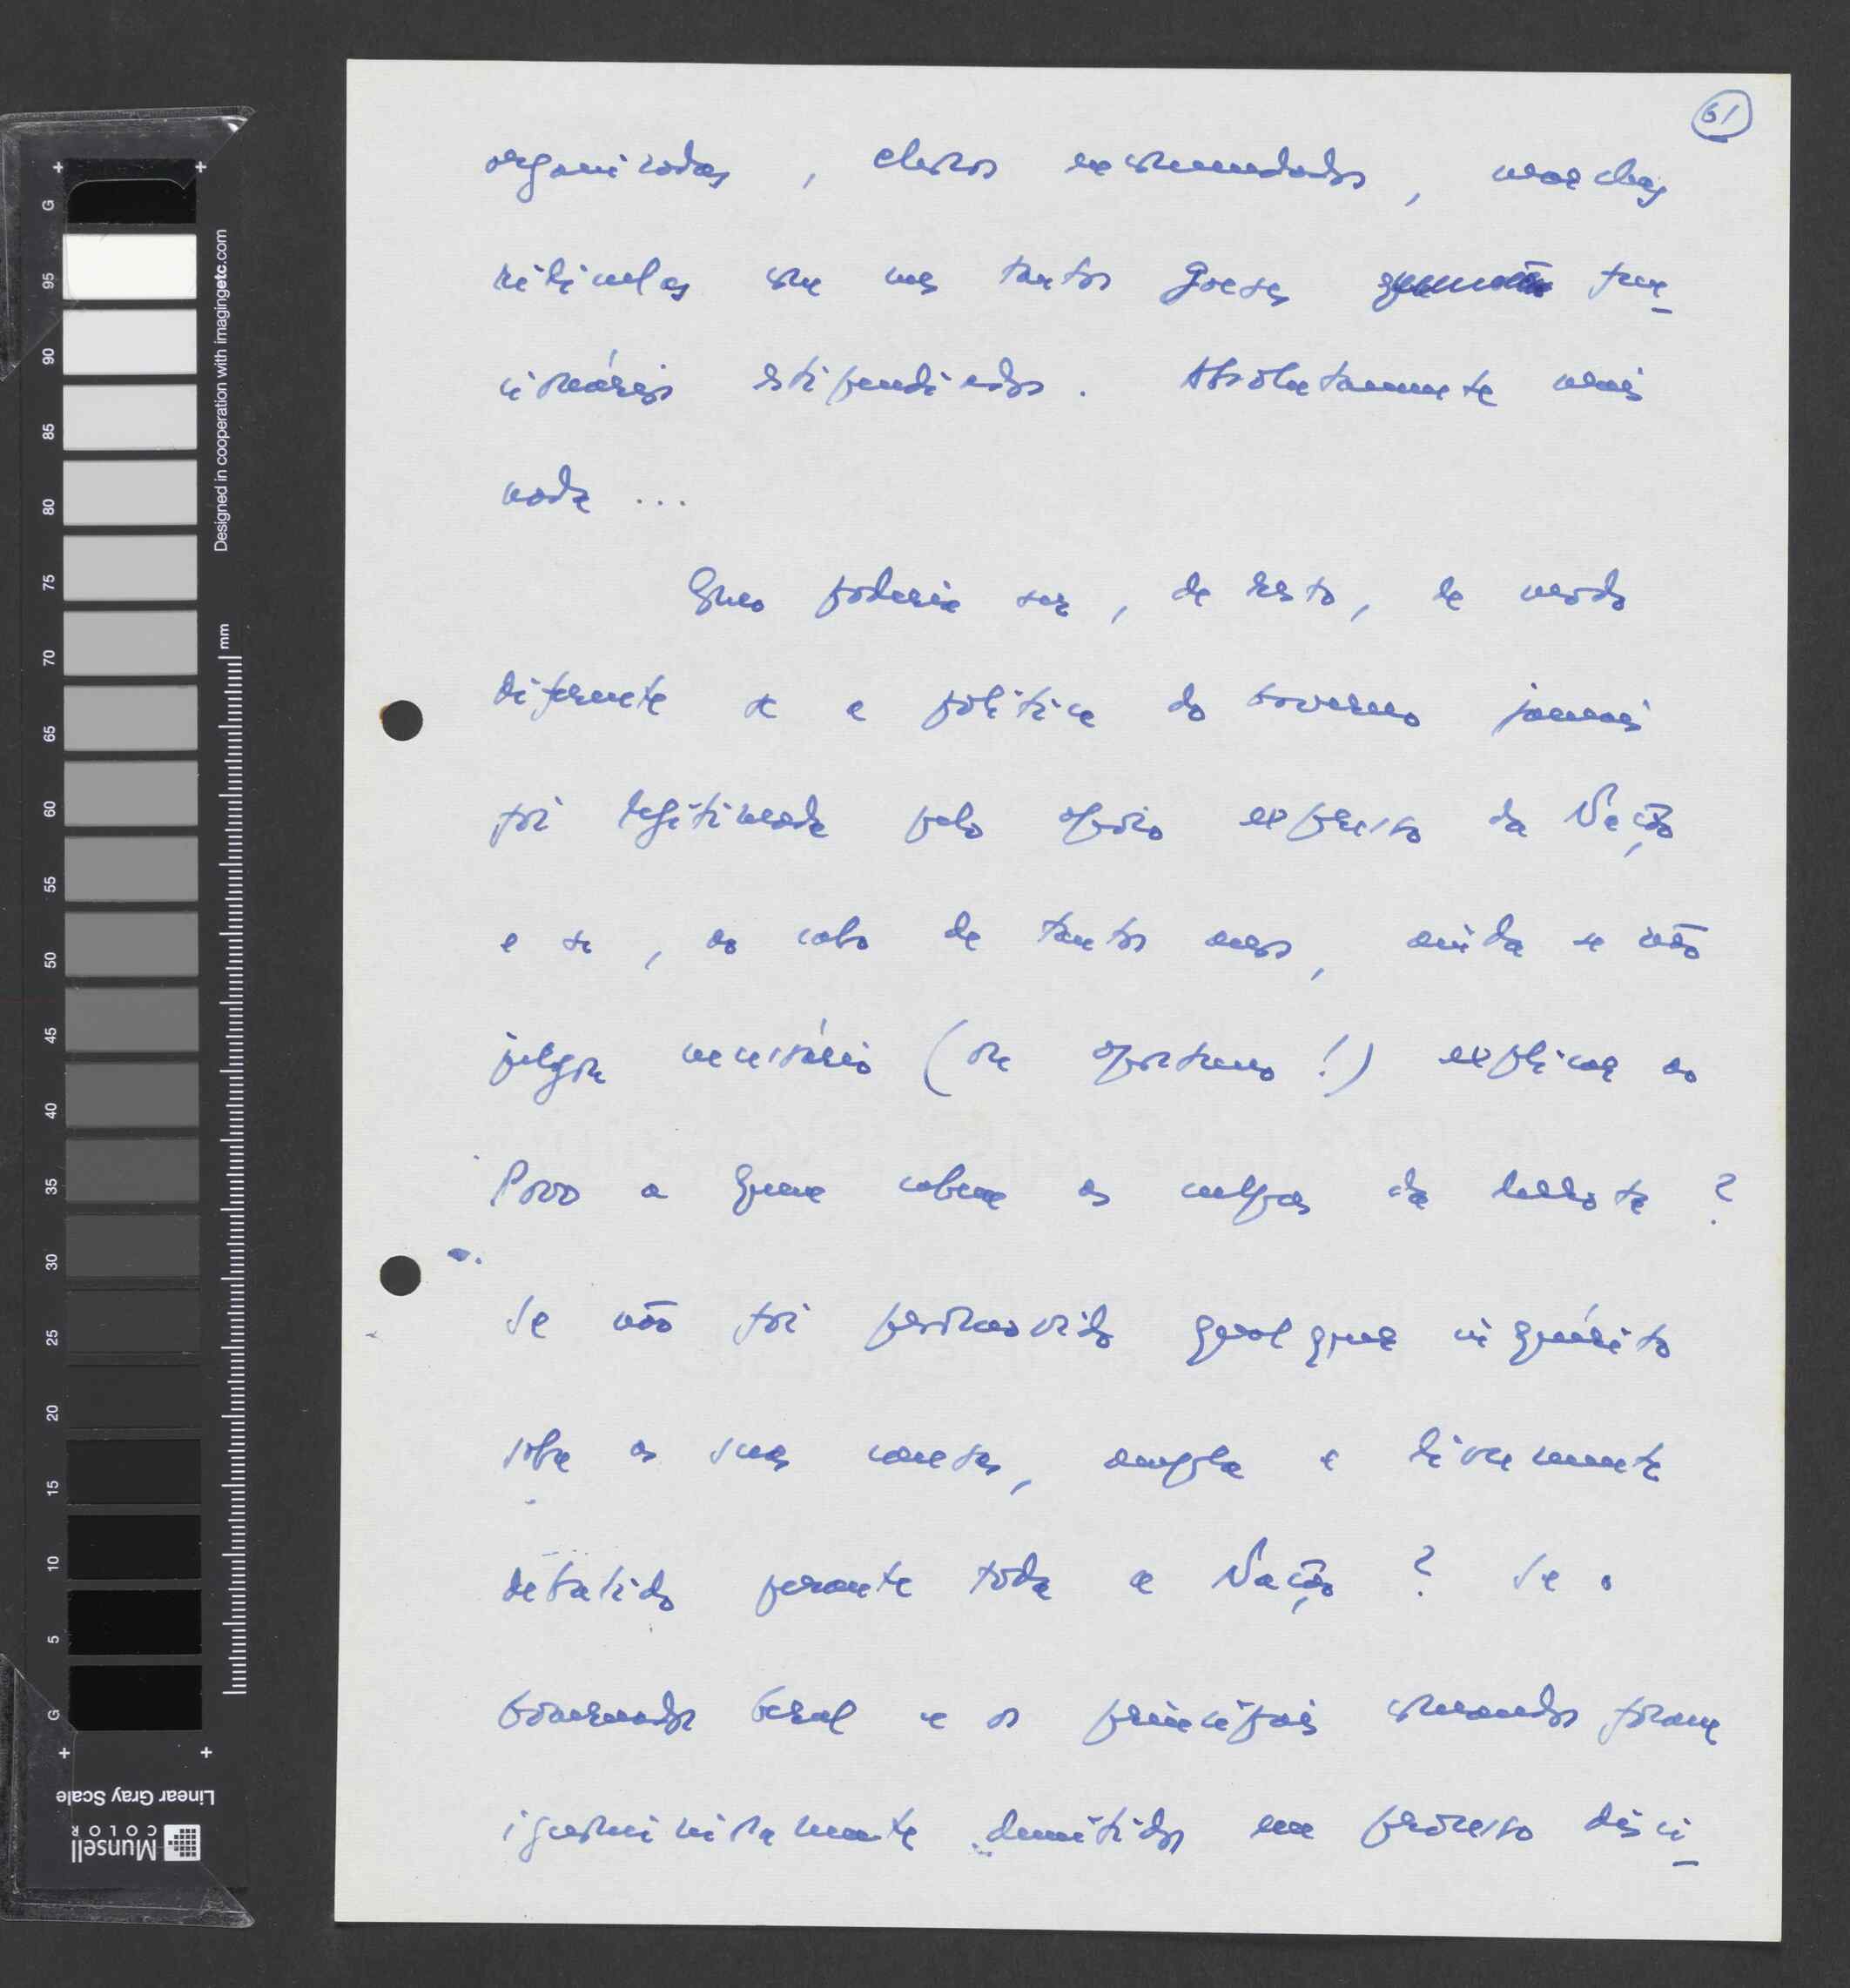 61
organizadas, choros encomendados, marchas
ridículas com uns tantos goeses fun-
cionários estipendiados. Absolutamente mais
nada ...
Como poderia ser, de resto, de modo
diferente se a política do Governo jamais
foi legitimada pelo apoio expresso da Nação
e se, ao cabo de tantos anos, ainda se não
julgou necessário (ou oportuno!) explicar ao
Povo a quem cabem as culpas da derrota?
Se não foi promovido qualquer inquérito
sobre as suas causas, ampla e livremente
debatido perante toda a Nação? Se o
Governador Geral e os principais comandos foram
ignominiosamente demitidos em processo disci-
G 95 90 85 80 75 70 65 60 55 50 45 40 35 30 25 20 15 10 5 G
Designed in cooperation with imagingetc.com
mm
Linear Gray Scale
Munsell
COLOR